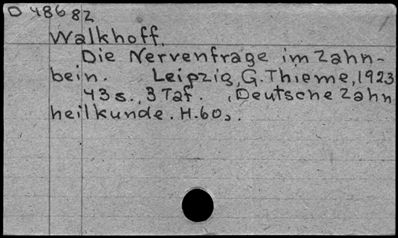 D 48682
Walkhoff.
Die Nervenfrage im Zahn-
bein. Leipzig, G. Thieme, 1923
43 s., 3 Taf. (Deutsche Zahn
heilkunde. H. 60).